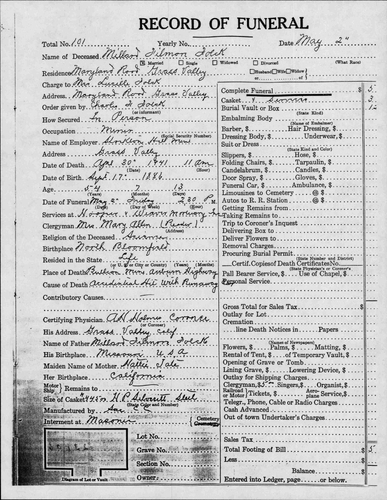 RECORD OF FUNERAL
Total No. 101 Yearly No. Date May 2"
Name of Deceased Millard Filmon Folck
Married Single Widowed Divorced (What Race)
Residence Maryland Road Grass Valley
Charge to Mrs. Luella Folck
Address Maryland Road Grass Valley
Order given by Charles F Folck
(or informant)
How Secured In Person
Occupation Miner
(Social Security Number)
Name of Employer
Grass Valley
Date of Death Apr. 30" 1941 11 am
Date of Birth Sept. 17" 1886
Age 54 7 13
Date of Funeral May 2" Friday 2:30 P.M.
Services at Hooper & Weaver Mortuary
Clergyman Mrs. Mary Allen (Reader)
Religion of the Deceased
Birthplace North Bloomfield
Resided in the State Life
Place of Death Auburn Highway
Cause of Death Accidental Hit With Runaway
Contributory Causes
Certifying Physician Coroner
(or Coroner)
His Address Grass Valley Calif
Name of Father Millard Filmore Folck
His Birthplace Missouri U.S.A.
Maiden Name of Mother Hattie
Her Birthplace California
Motor Ship Remains to
Size of Casket
Manufactured by
Interment at Masonic Cemetery
Lot No.
Grave No.
Section No.
Owner:
Diagram of Lot or Vault
Complete Funeral $
Casket & Services
Burial Vault or Box
(State Kind)
Embalming Body
(Name of Embalmer)
Barber, $ Hair Dressing, $
Dressing Body, $ Underwear, $
Suit or Dress
(State Kind and Color)
Slippers, $ Hose, $
Folding Chairs, $ Tarpaulin, $
Candelabrum, $ Candles, $
Door Spray, $ Gloves, $
Funeral Car, $ Ambulance, $
Limousines to Cemetery @ $
Autos to R. R. Station @ $
Getting Remains from
Taking Remains to
Trip to Coroner's Inquest
Delivering Box to
Deliver Flowers to
Removal Charges
Procuring Burial Permit
(State Number and District)
Certif. Copies of Death Certificate No.
(State Physician's or Coroner)
Pall Bearer Service, $ Use of Chapel, $
Personal Service
Gross Total for Sales Tax $
Outlay for Lot
Cremation
line Death Notices in Papers
(Names of Newspapers)
Flowers, $ Palms, $ Matting, $
Rental of Tent, $ of Temporary Vault, $
Opening of Grave or Tomb
Lining Grave, $ Lowering Device, $
Outlay for Shipping Charges
Clergyman, $5.00 Singers, $ Organist, $
Railroad or Motor Tickets, $ Aero-plane Service, $
Telegr., Phone, Cable or Radio Charges
Cash Advanced
Out of town Undertaker's Charge
Sales Tax
Total Footing of Bill $
Less
Balance $
Entered into Ledger, page or below.